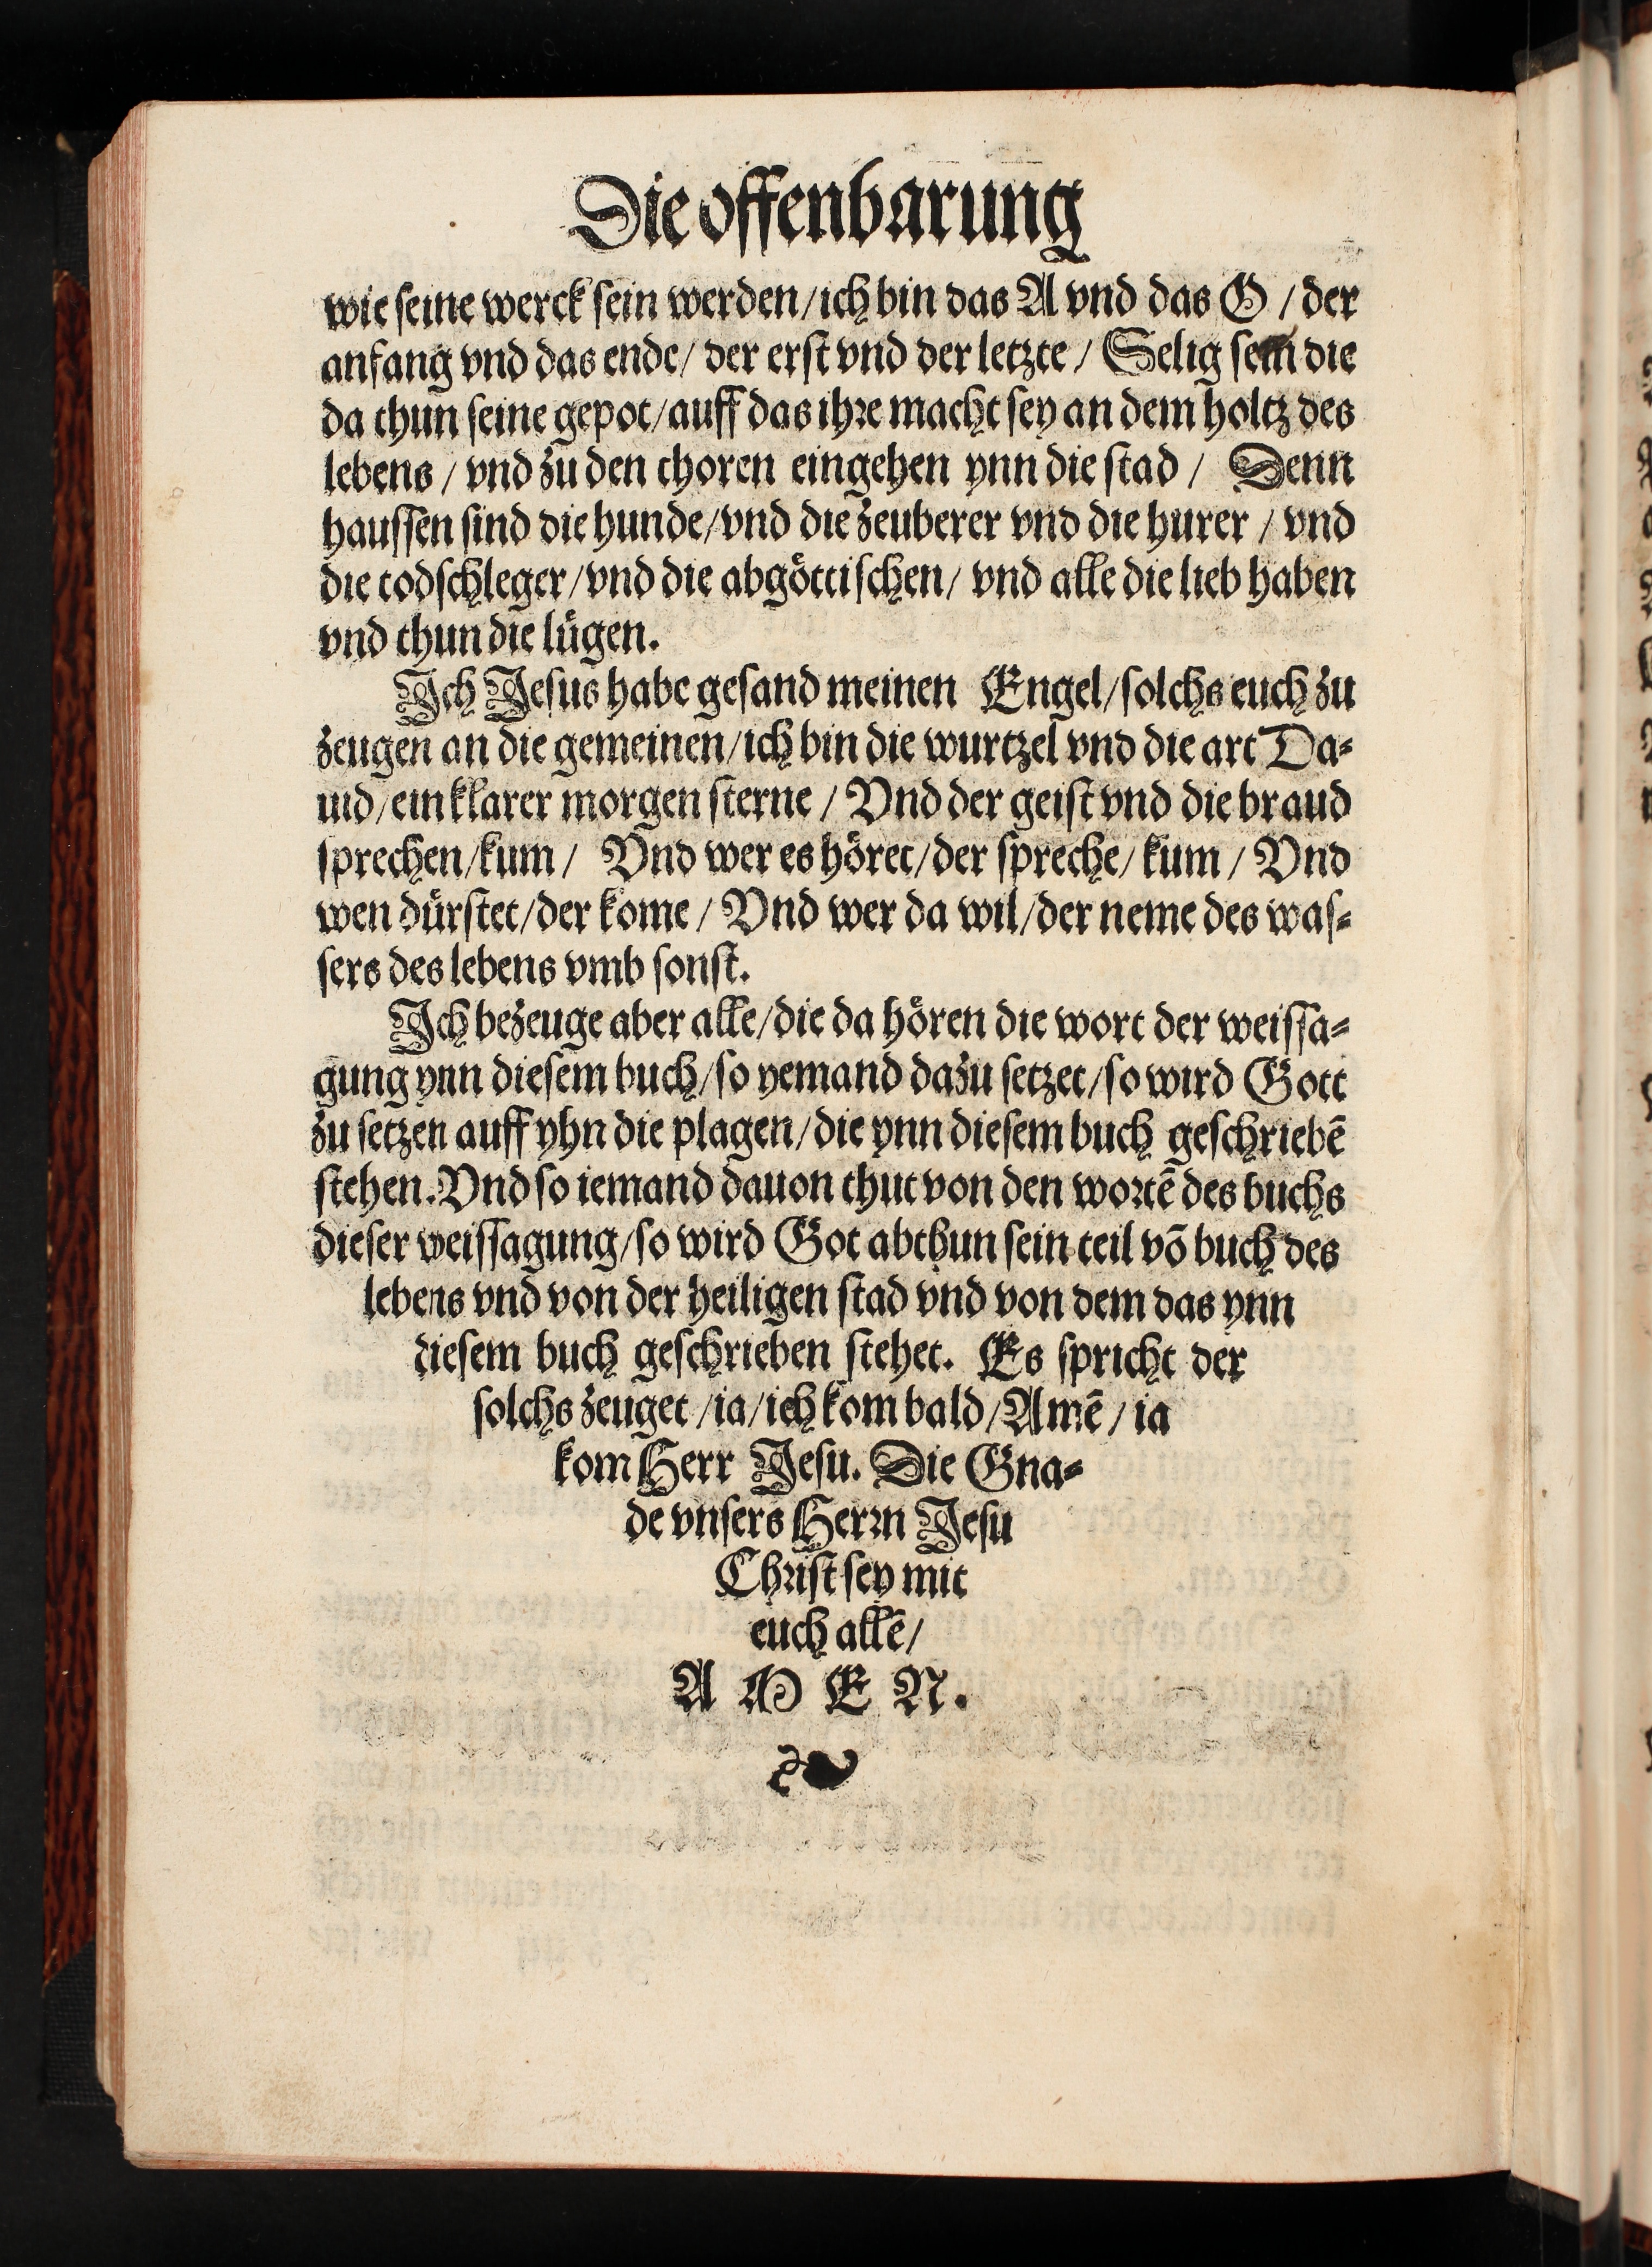 Die offenbarung
wie seine werck sein werden/ich bin das A vnd das O / der
anfang vnd das ende/ der erst vnd der letzte / Selig sein die
da thun seine gepot/auff das ihre macht sey an dem holtz des
lebens / vnd zu den thoren eingehen ynn die stad / Denn
haussen sind die hunde/vnd die zeuberer vnd die hurer / vnd
die todschleger/vnd die abgöttischen/ vnd alle die lieb haben
vnd thun die lügen.
Ich Jesus habe gesand meinen Engel/solchs euch zu
zeugen an die gemeinen/ich bin die wurtzel vnd die art Da⸗
uid/ein klarer morgen sterne / Vnd der geist vnd die braud
sprechen/kum / Vnd wer es höret/der spreche/ kum / Vnd
wen dürstet/der kome / Vnd wer da wil/der neme des was⸗
sers des lebens vmb sonst.
Ich bezeuge aber alle/die da hören die wort der weissa⸗
gung ynn diesem buch/so yemand dazu setzet/so wird Gott
zu setzen auff yhn die plagen/die ynn diesem buch geschriebē
stehen.Vnd so iemand dauon thut von den wortē des buchs
dieser weissagung/so wird Got abthun sein teil võ buch des
lebens vnd von der heiligen stad vnd von dem das ynn
diesem buch geschrieben stehet. Es spricht der
solchs zeuget /ia/ich kom bald/Amē / ia
kom Herr Jesu. Die Gna⸗
de vnsers Herrn Jesu
Christ sey mit
euch allē/
A M E N.